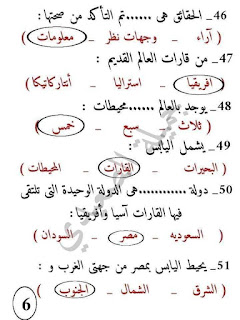 46_ الحقائق هى ......تم التأكد من صحتها :
( آراء _ وجهات نظر _ معلومات )
47_ من قارات العالم القديم :
( افريقيا _ استراليا _ أنتاركاتيكا )
48_ يوجد بالعالم .......محيطات :
( ثلاث _ سبع _ خمس )
49_ يشمل اليابس :
( البحيرات _ القارات _ المحيطات )
50_ دولة ............هى الدولة الوحيدة التى تلتقى
فيها القارات آسيا وأفريقيا :
( السعوديه _ مصر _ السودان )
51_ يحيط اليابس بمصر من جهتى الغرب و :
( الشرق _ الشمال _ الجنوب )
6